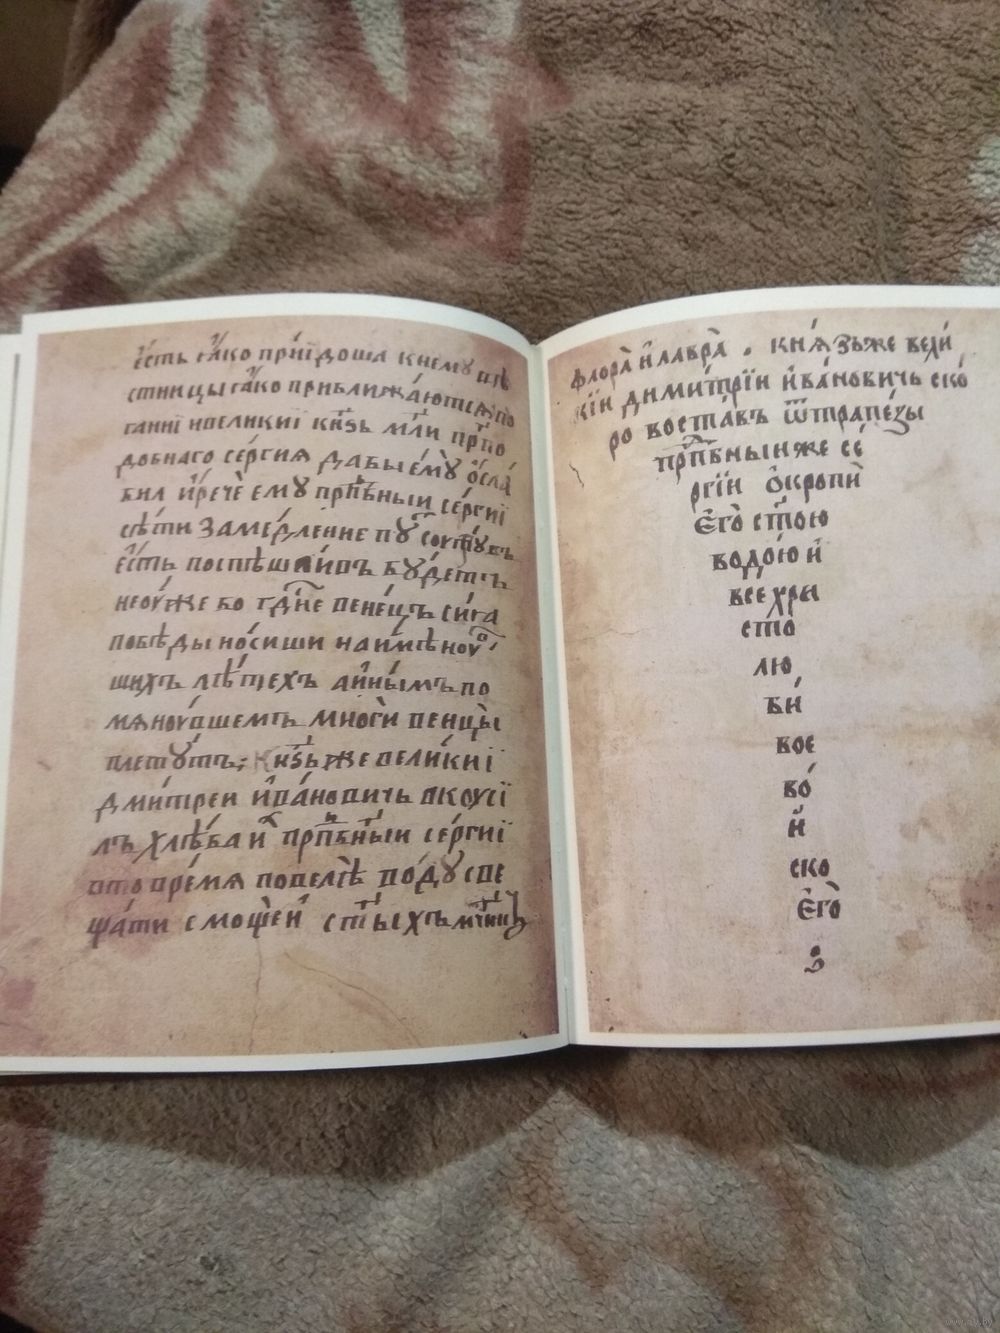 е́сть ꙗ҆́ко прїидоша кнему вѣ
стницы ꙗ҆́ко приближа́ютсѧ по
ганиї ивеликиї кнѕь мл҃и прп҇о
добнаго се́ргиꙗ дабы ємꙋ̀ о҆сла́
бил и҆речѐ ему прпⷣбныи се́ргиї
се́ти замедление
е҆́сть поспѣш бꙋ́детъ
неоу́же бо гдⷭ҇не венецъ сиꙗ
побѣды но́сиши
шихъ лѣтехъ а и҆ны́мъ по
мѧноувшемъ мно́ги венцы̀
плетꙋтъ; кнѕьже вели́киї
дми́треи и҆ва́новичь вкоусї
лъ хлѣ́ба и҆ прпⷣбныи се́ргиї
вто вре́мѧ повелѣ̀ во́дꙋ све
ща́ти с моще́й ст҃ыхъ мч҃нкъ
флора̀ и҆лавра̀ . кнѧ́зьже вели́
кїи дими́трїи и҆ва́новичь ско́
ро воста́въ ѿтрапе́зы
прпⷣбныиже се́
ргїи ѻ҆кропѝ
є҆го̀ ст҃ою
водо́ю и҆
все хри
сто̀
лю
би́
вое
во́
и҆
ско
є҆го̀
www.ay.by